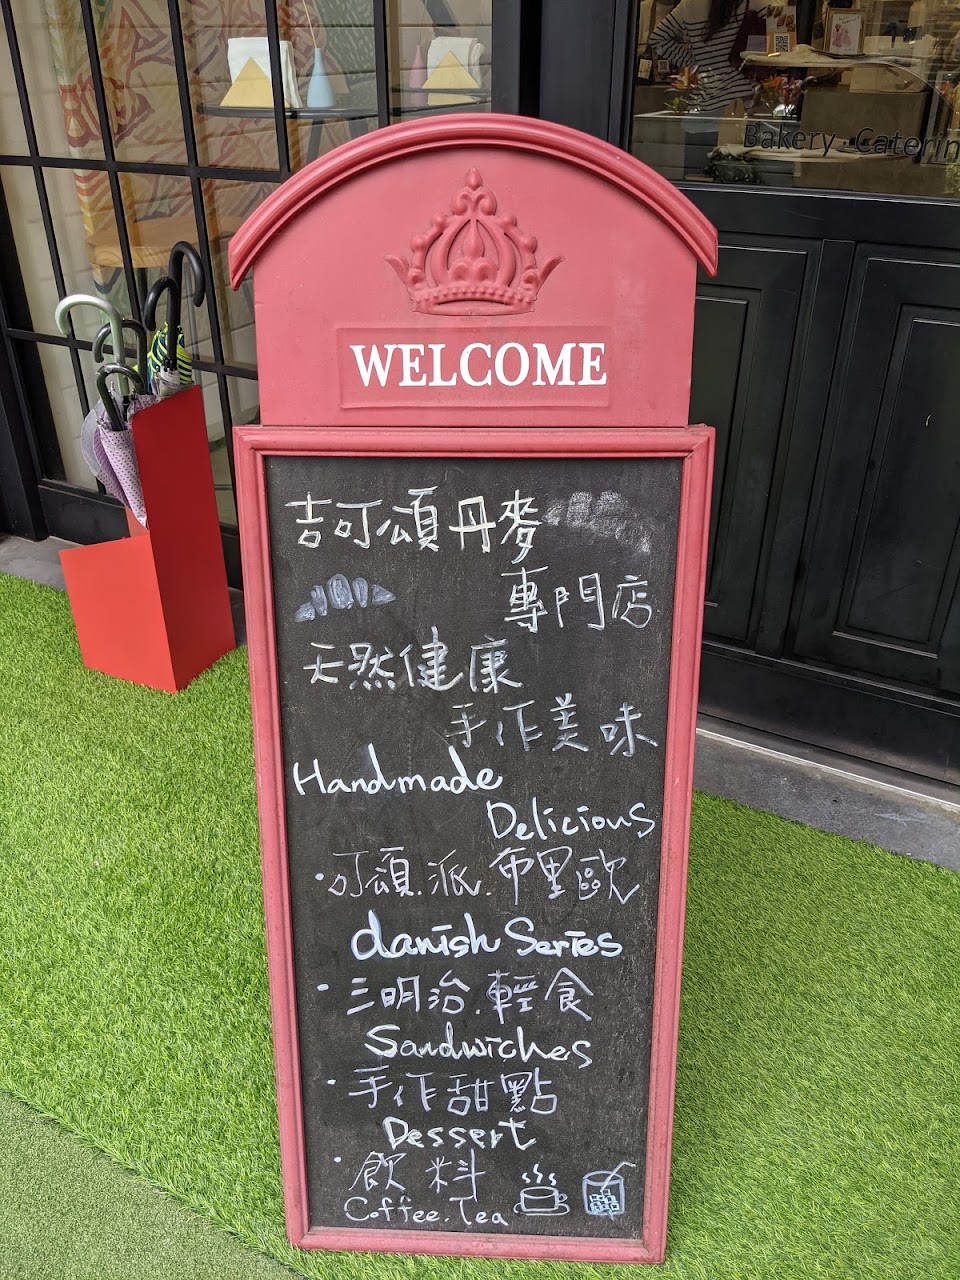 Bakery · Caterin
WELCOME
吉可頌丹麥
專門店
天然健康
手作美味
Handmade
Delicious
·可頌.派.布里歐
danish Series
·三明治.輕食
Sandwiches
·手作甜點
Dessert
·飲料
Coffee.Tea